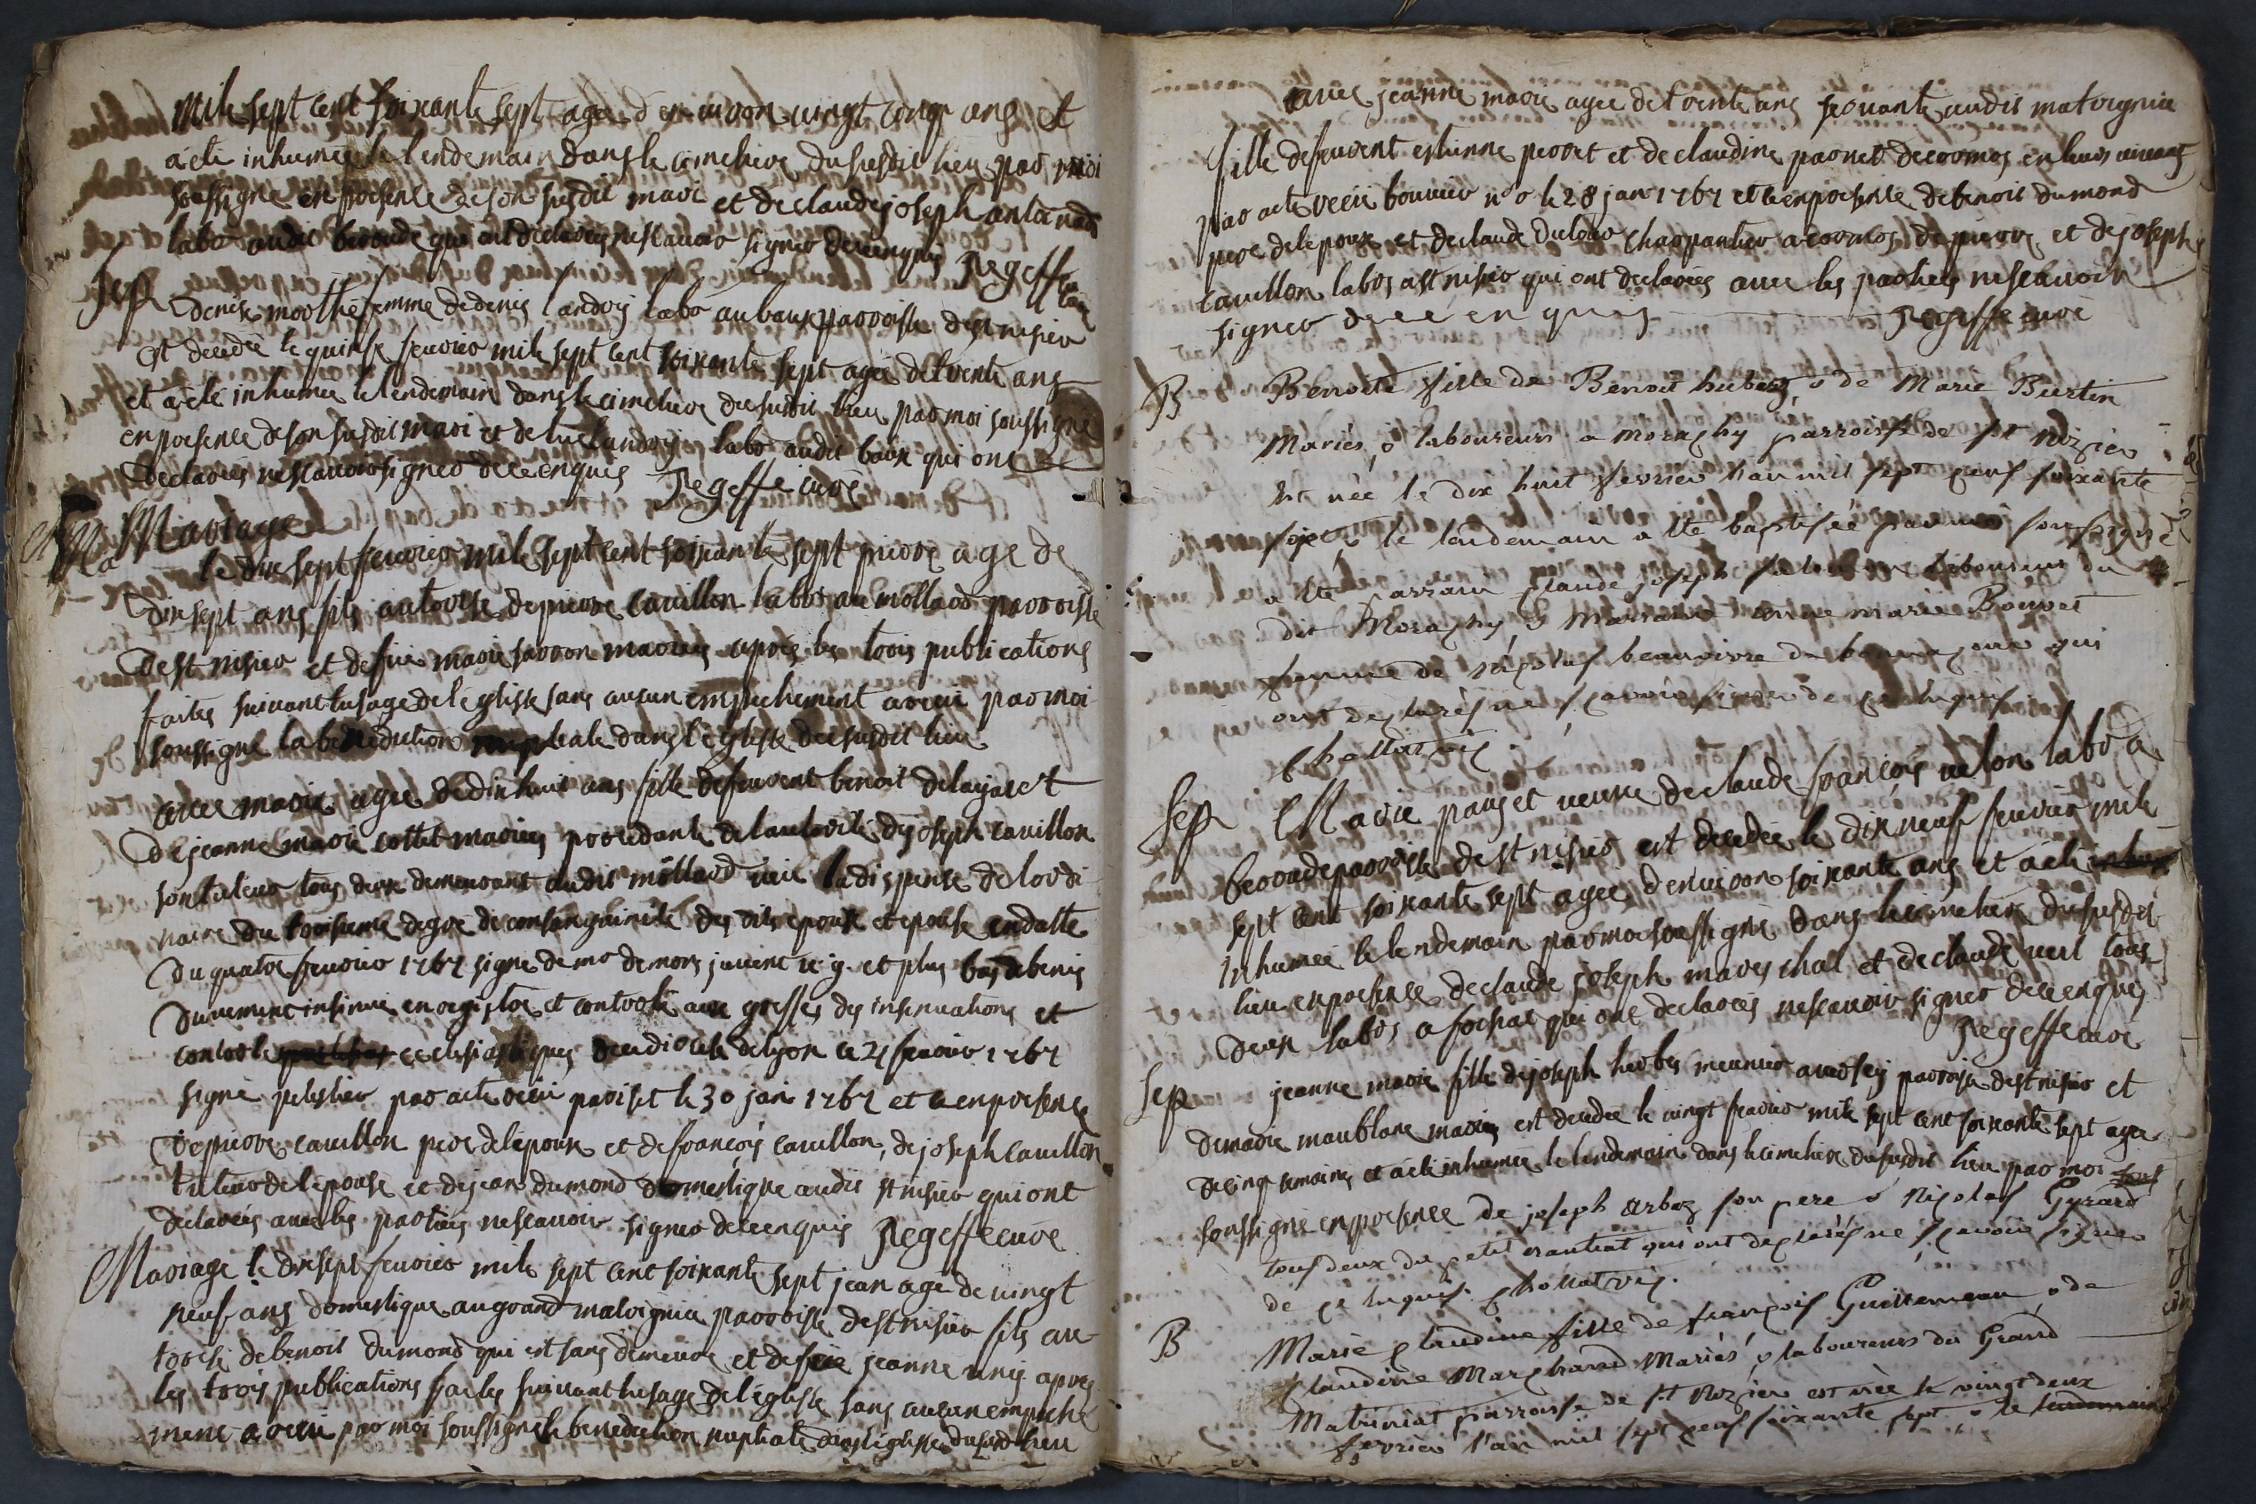 mile sept cent soixante sept agée d environ vingt cinq ans et
a eté inhumée le lendemain dans le cimetiere du susdit lieu par moi
soussigné en presence de son susdit mari et de claude joseph
labo audit beroude qui ont declarés ne scavoir signer de ce enquis Regeffe curé
Sep denise morthé femme de denis landry labo au baux parroisse de st nisier
est decedée le quinse fevrier mile sept cent soixante sept agée de trente ans
et a eté inhumée le lendemain dans le cimetiere du susdit lieu par moi soussigné
en presence de son susdit mari et de landry labo audit baux qui ont
declarés ne scavoir signer de ce enquis Regeffe curé
Mariage
le dix sept fevrier mile sept cent soixante sept pierre agé de
dix sept ans fils autorisé de pierre cavillon labor au mollard parroisse
de st nisier et de feüe marie mariés apres les trois publications
faites suivant lusage de l église sans aucun empechement a receu par moi
soussigné la benediction nuptiale dans l église du susdit lieu
avec marie agée de dix huit ans fille de feu vent benoit delajaret
de jeanne marie collet mariés procedante de lautorité de joseph cavillon
son tuteur tous deux demeurant audit mollard veüe la dispense de lordi
naire du troisieme degré de consanguinité des dits epoux et epouse en datte
du quatre fevrier 1767 signé de mr de mons juvent v. g. et plus bas debenis
duement insinué enregistré et controllé aux greffes des insinuations et
controle ecclesiastiques du diocese de lyon ce 21 fevrier 1767
signé pelissier par acte receu pariset le 30 jan 1767 et ce en presence
de pierre cavillon pere de lepoux et de francois cavillon, de joseph cavillon
tuteur de lepouse et de jean dumond domestique audit st nisier qui ont
declarés avec les parties ne scavoir signer de ce enquis Regeffe curé
Mariage le dix sept fevrier mile sept cent soixante sept jean agé de vingt
neuf ans domestique au grand matrignia parroisse de st nisier fils au
torisé de benoit dumond qui est sans demeure et de feüe jeanne apres
les trois publications faites suivant lusage de l église sans aucun empeche
ment a receu par moi soussigné la benediction nuptiale dans l église du susd lieu
avec jeanne marie agée de trente ans servante audit matrignia
fille de feu vent estienne perret et de claudine parnet de cormos en leurs vivants
par acte receu bouvier nre le 28 janr 1767 et ce en presence de benoit dumond
pere de lepoux et de claude dutour charpantier a cormos de pierre et de joseph
cavillon labos a st nisier qui ont declarés avec les parties ne scavoir
signer de ce enquis Regeffe curé
B Benoite fille de Benoit hubert & de Marie Burtin
Mariés & laboureurs a moragny parroisse de st Nizier
est née le dix huit fevrier l'an mil sept cens soixante
sept & le lendemain a ete baptisée par moi soussigné
a ete parrain claude joseph laboureur du
dit Moragny & Marraine anne marie Bouvet
femme de nicolas beauvivre qui
ont declarés ne scavoir signer de ce enquis
Chollat vic.
Sep Marie panget veuve de claude francois labor a
beroude parroisse de st nisier est decedée le dix neuf fevrier mile
sept cent soixante sept agée d environ soixante ans et a eté
inhumée le lendemain par moi soussigné dans le cimetiere du susdit
lieu en presence de claude joseph mareschal et de claude tous
deux labos a forchat qui ont declarés ne scavoir signer de ce enquis
Regeffe curé
Sep jeanne marie fille de joseph herbes meunier a parroisse de st nisier et
de marie maublanc mariés est decedée le vingt fevrier mile sept cent soixante sept agée
de cinq semaines et a eté inhumée le lendemain dans le cimetiere du susdit lieu par moi
soussigné en presence de joseph arbez son pere & Nicolas Gyrard
tous deux du petit qui ont declarés ne scavoir signer
de ce enquis. Chollat vic.
B Marie claudine fille de françois Guillemeau & de
Claudine Marchand Mariés & laboureurs du Grand
Matriniat parroisse de st Nizier est née le vingt deux
fevrier l'an mil sept cens soixante sept & le lendemain